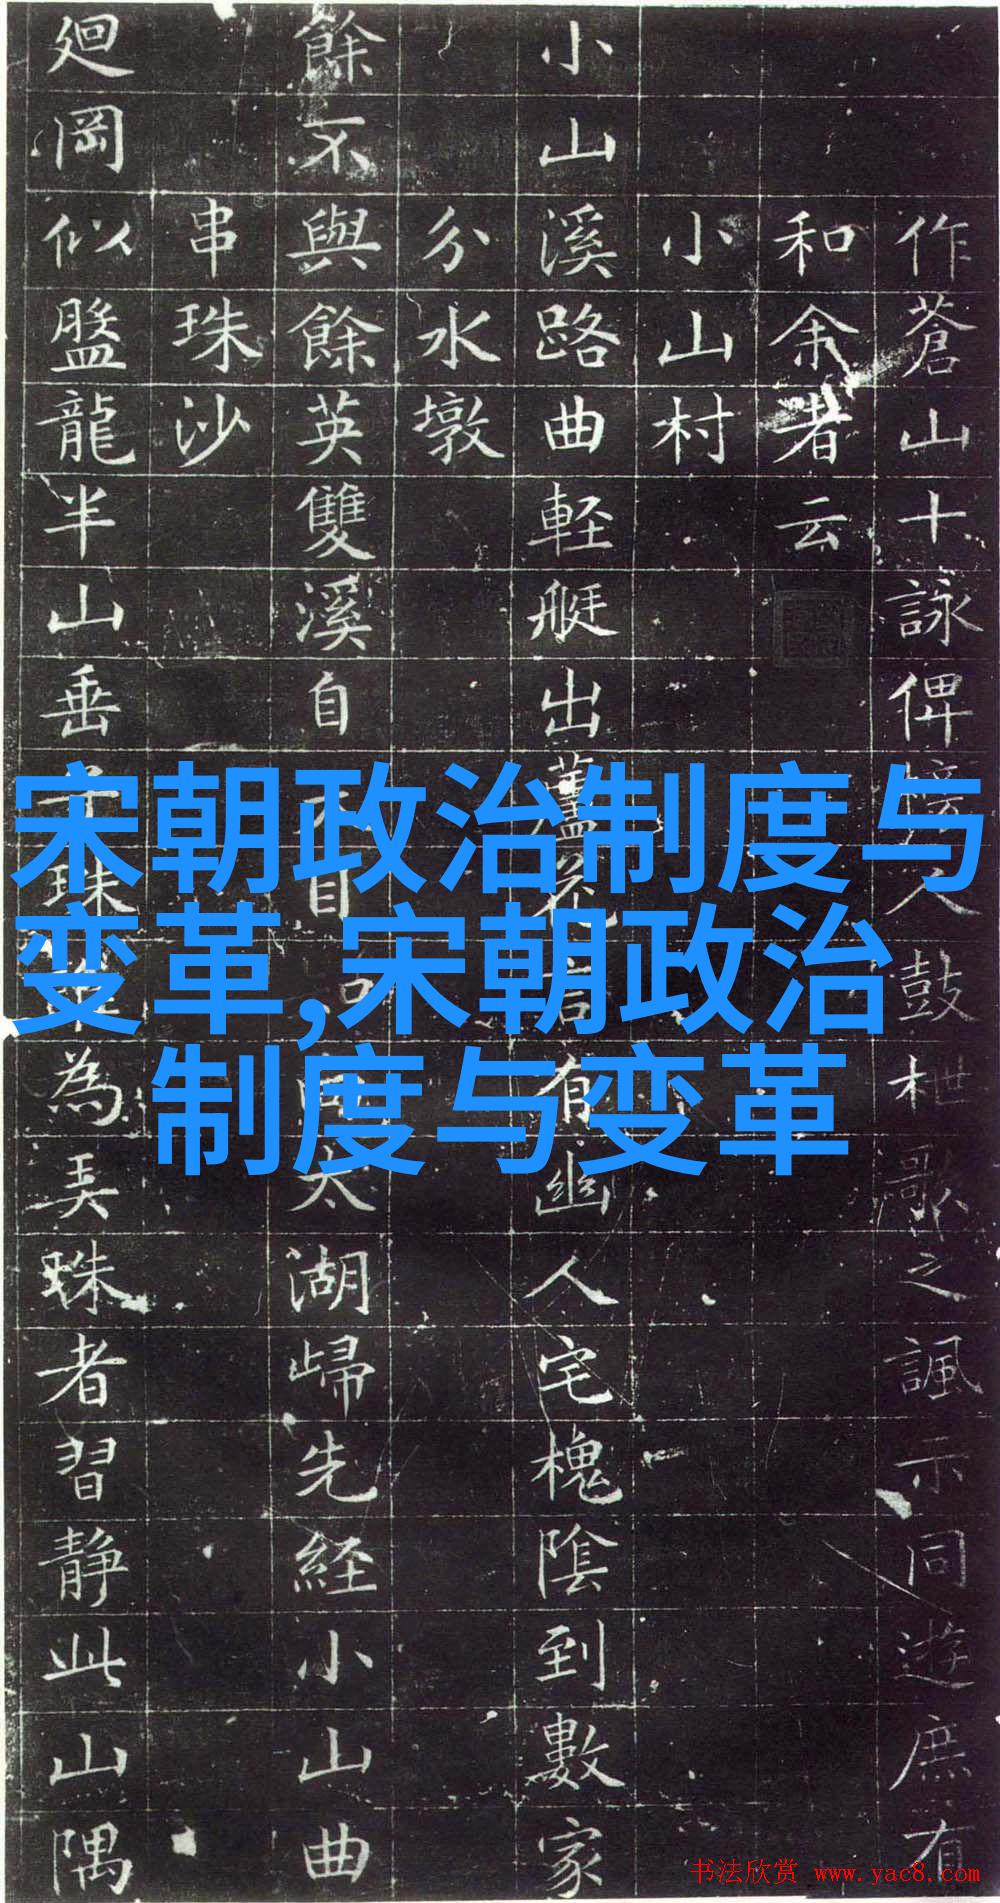 作蒼山十詠俾榜人鼓枻歌之諷示同遊庶有
和余者云
小山村
小山溪路曲輕艇出蘆花言有幽人宅槐陰到數家
分水墩
餘不與餘英雙溪自太湖歸先経小山曲
串珠沙
廻岡似盤龍半山垂珠為美珠者習静此山隅
宋朝政治制度与
变革,宋朝政治
制度与变革
书法欣赏 www.yac8.com